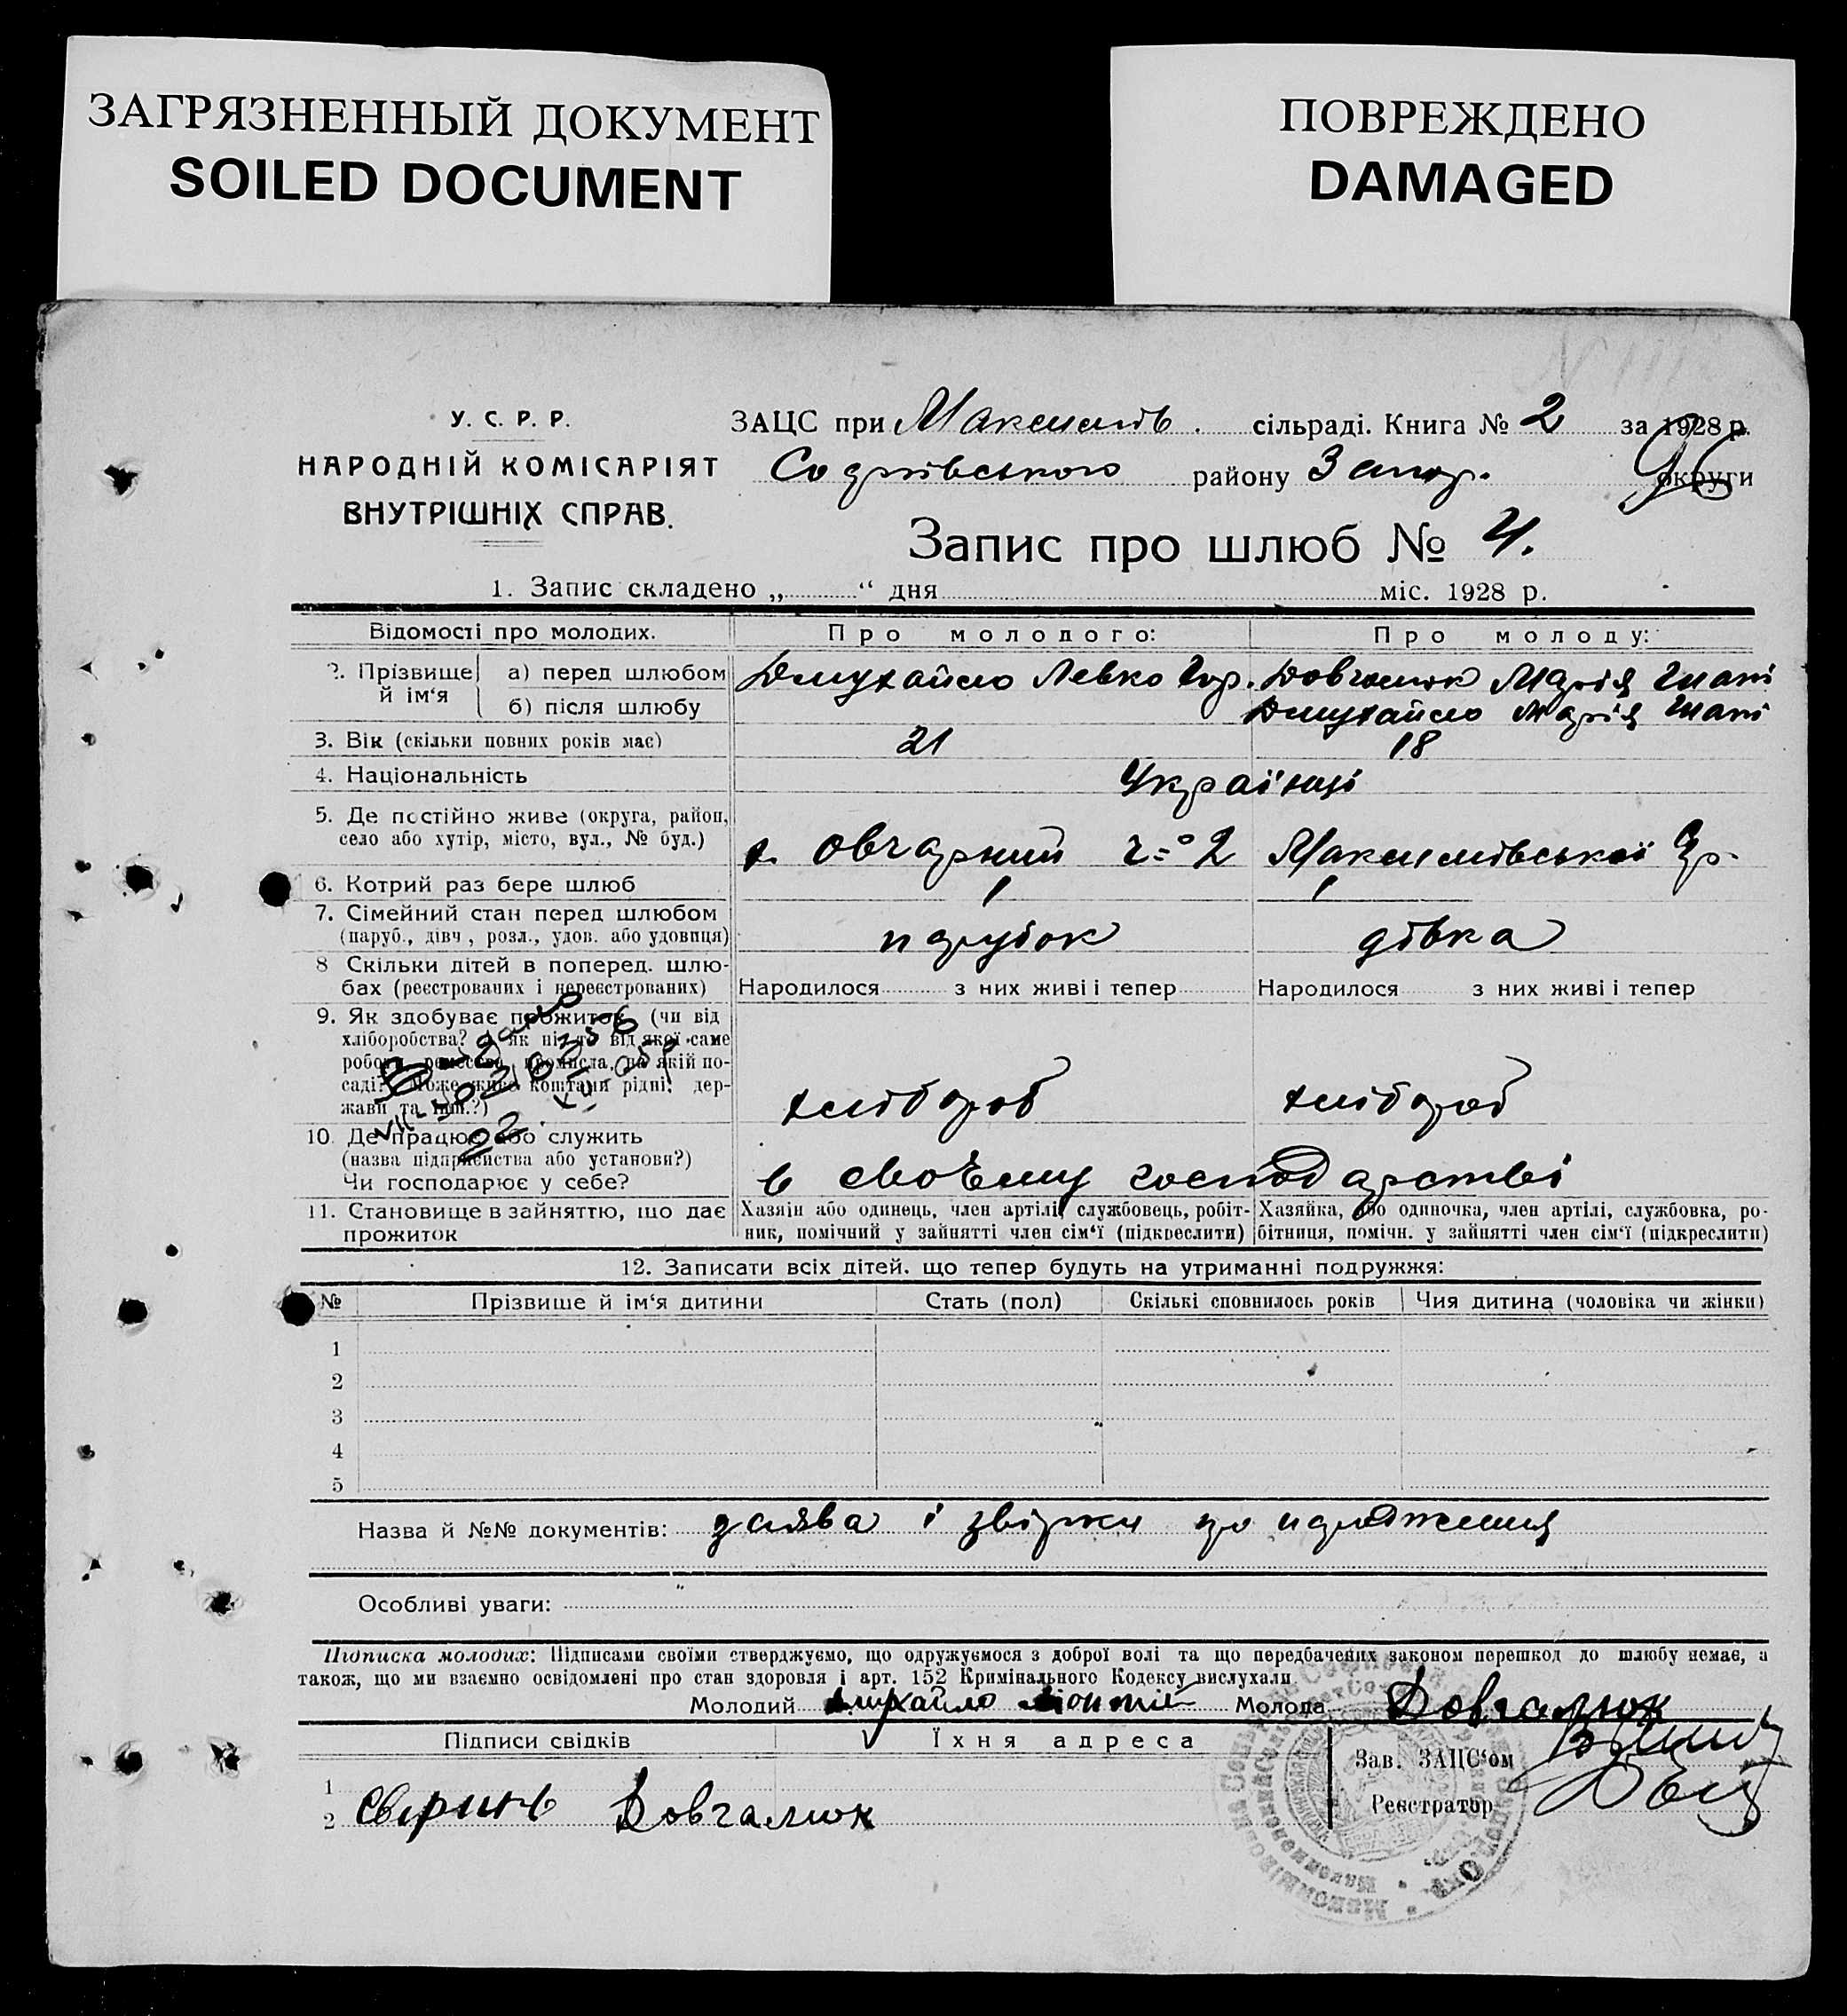 ЗАГРЯЗНЕННЫЙ ДОКУМЕНТ
SOILED DOCUMENT
ПОВРЕЖДЕНО
DAMAGED
У. С. Р. Р.
НАРОДНІЙ КОМІСАРІЯТ
ВНУТРІШНІХ СПРАВ.
ЗАЦС при Максимів. сільраді. Книга № 2 за 1928 р.
Софіївського району Запор. округи
Запис про шлюб № 4.
1. Запис складено „ “ дня міс. 1928 р.
Відомості про молодих. Про молодого: Про молоду:
2. Прізвище й ім‘я
а) перед шлюбом Дмухайло Левко Гр. Довгалюк Марія Гнат
б) після шлюбу Дмухайло Марія Гнат
3. Вік (скільки повних років має) 21 18
4. Національність Українці
5. Де постійно живе (округа, район,
село або хутір, місто, вул., № буд.) х. Овчарний ч. 2 Максимівської
6. Котрий раз бере шлюб 1 1
7. Сімейний стан перед шлюбом
(паруб., дівч., розл., удов. або удовиця) парубок дівка
8 Скільки дітей в поперед. шлю-
бах (реєстрованих і нереєстрованих) Народилося з них живі і тепер Народилося з них живі і тепер
9. Як здобуває прожиток (чи від
хліборобства? А як ні, то від якої саме
роботи, ремесства, промисла, на якій по-
саді? Може живе коштами рідні, дер-
жави та інш.?) хлібороб хлібороб
10. Де працює або служить
(назва підприємства або установи?)
Чи господарює у себе? в своєму господарстві
11. Становище в зайняттю, що дає
прожиток
Хазяїн або одинець, член артілі, службовець, робіт-
ник, помічний у зайнятті член сім‘ї (підкреслити)
Хазяйка, або одиночка, член артілі, службовка, ро-
бітниця, помічн. у зайнятті член сім‘ї (підкреслити)
12. Записати всіх дітей, що тепер будуть на утриманні подружжя:
№ Прізвище й ім‘я дитини Стать (пол) Скількі сповнилось років Чия дитина (чоловіка чи жінки)
1
2
3
4
5
Назва й №№ документів: заява і звірки про народження
Особливі уваги:
Підписка молодих: Підписами своїми стверджуємо, що одружуємося з доброї волі та що передбачених законом перешкод до шлюбу немає, а
також, що ми взаємно освідомлені про стан здоровля і арт. 152 Кримінального Кодексу вислухали
Молодий Дмухайло Молода Довгалюк
Підписи свідків Їхня адреса
Зав. ЗАЦС‘ом
Реєстратор
1
2 Сверинь Довгалюк